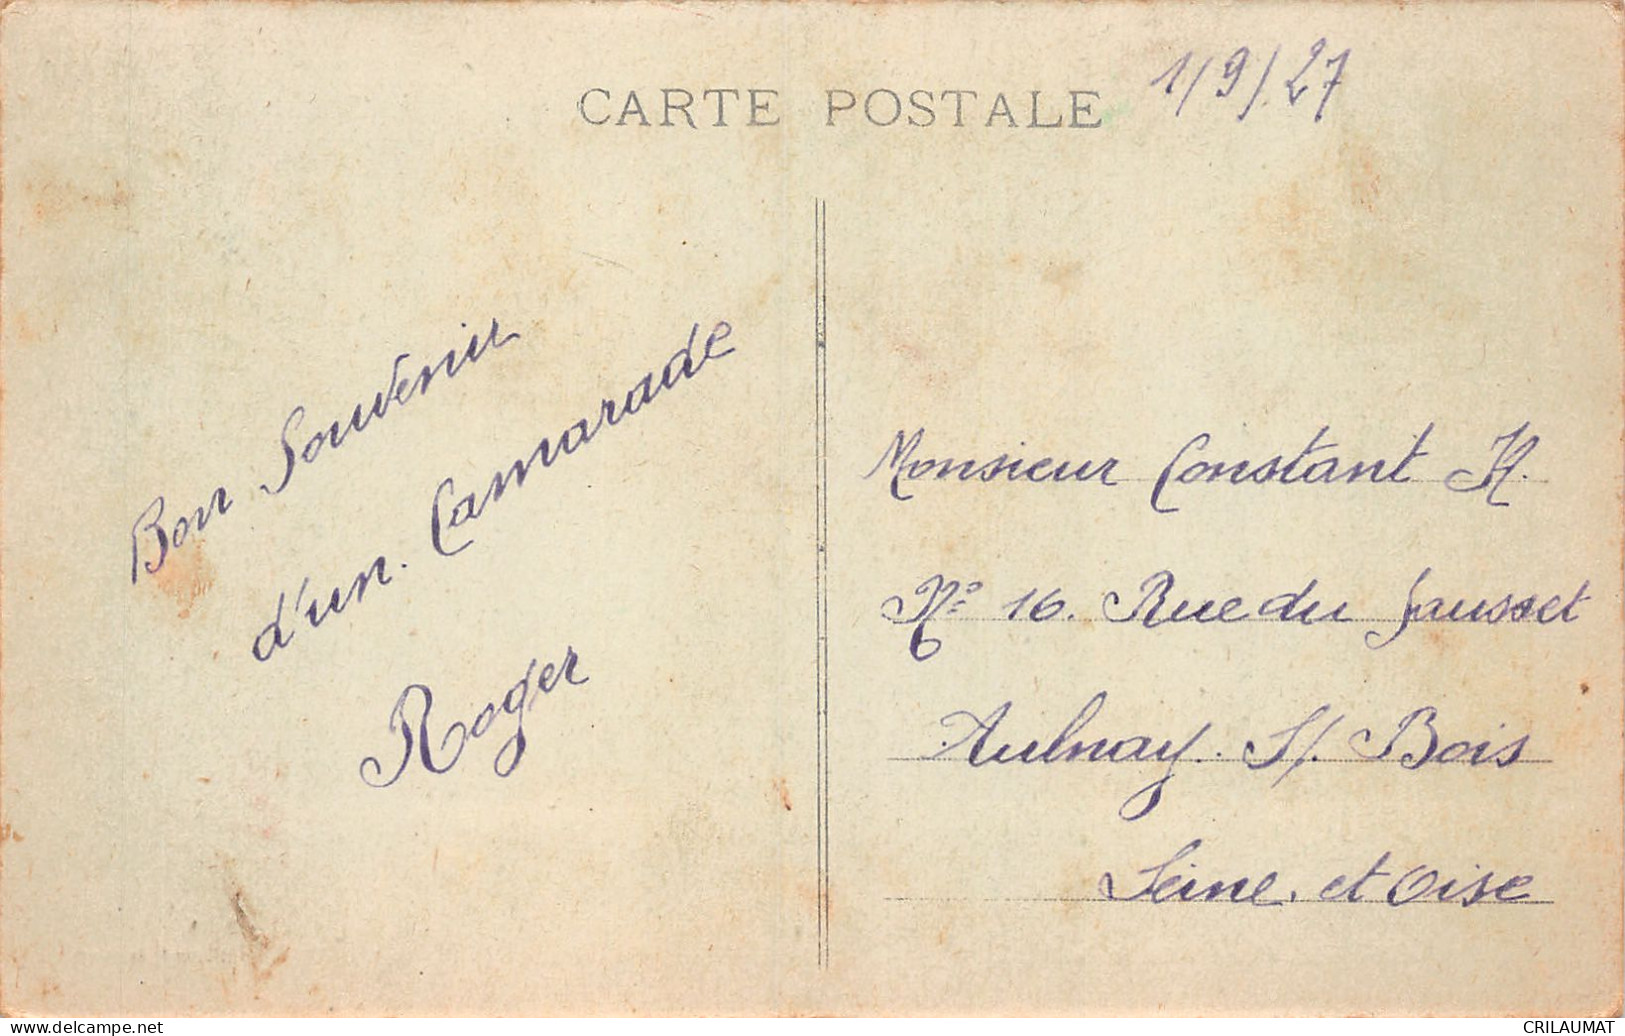 CARTE POSTALE
1/9/27
Bon Souvenir
d'un. Camarade
Roger
Monsieur Constant H.
No 16. Rue du Sausset
Aulnay. S/. Bois
Seine. et Oise
www.delcampe.net
CRILAUMAT